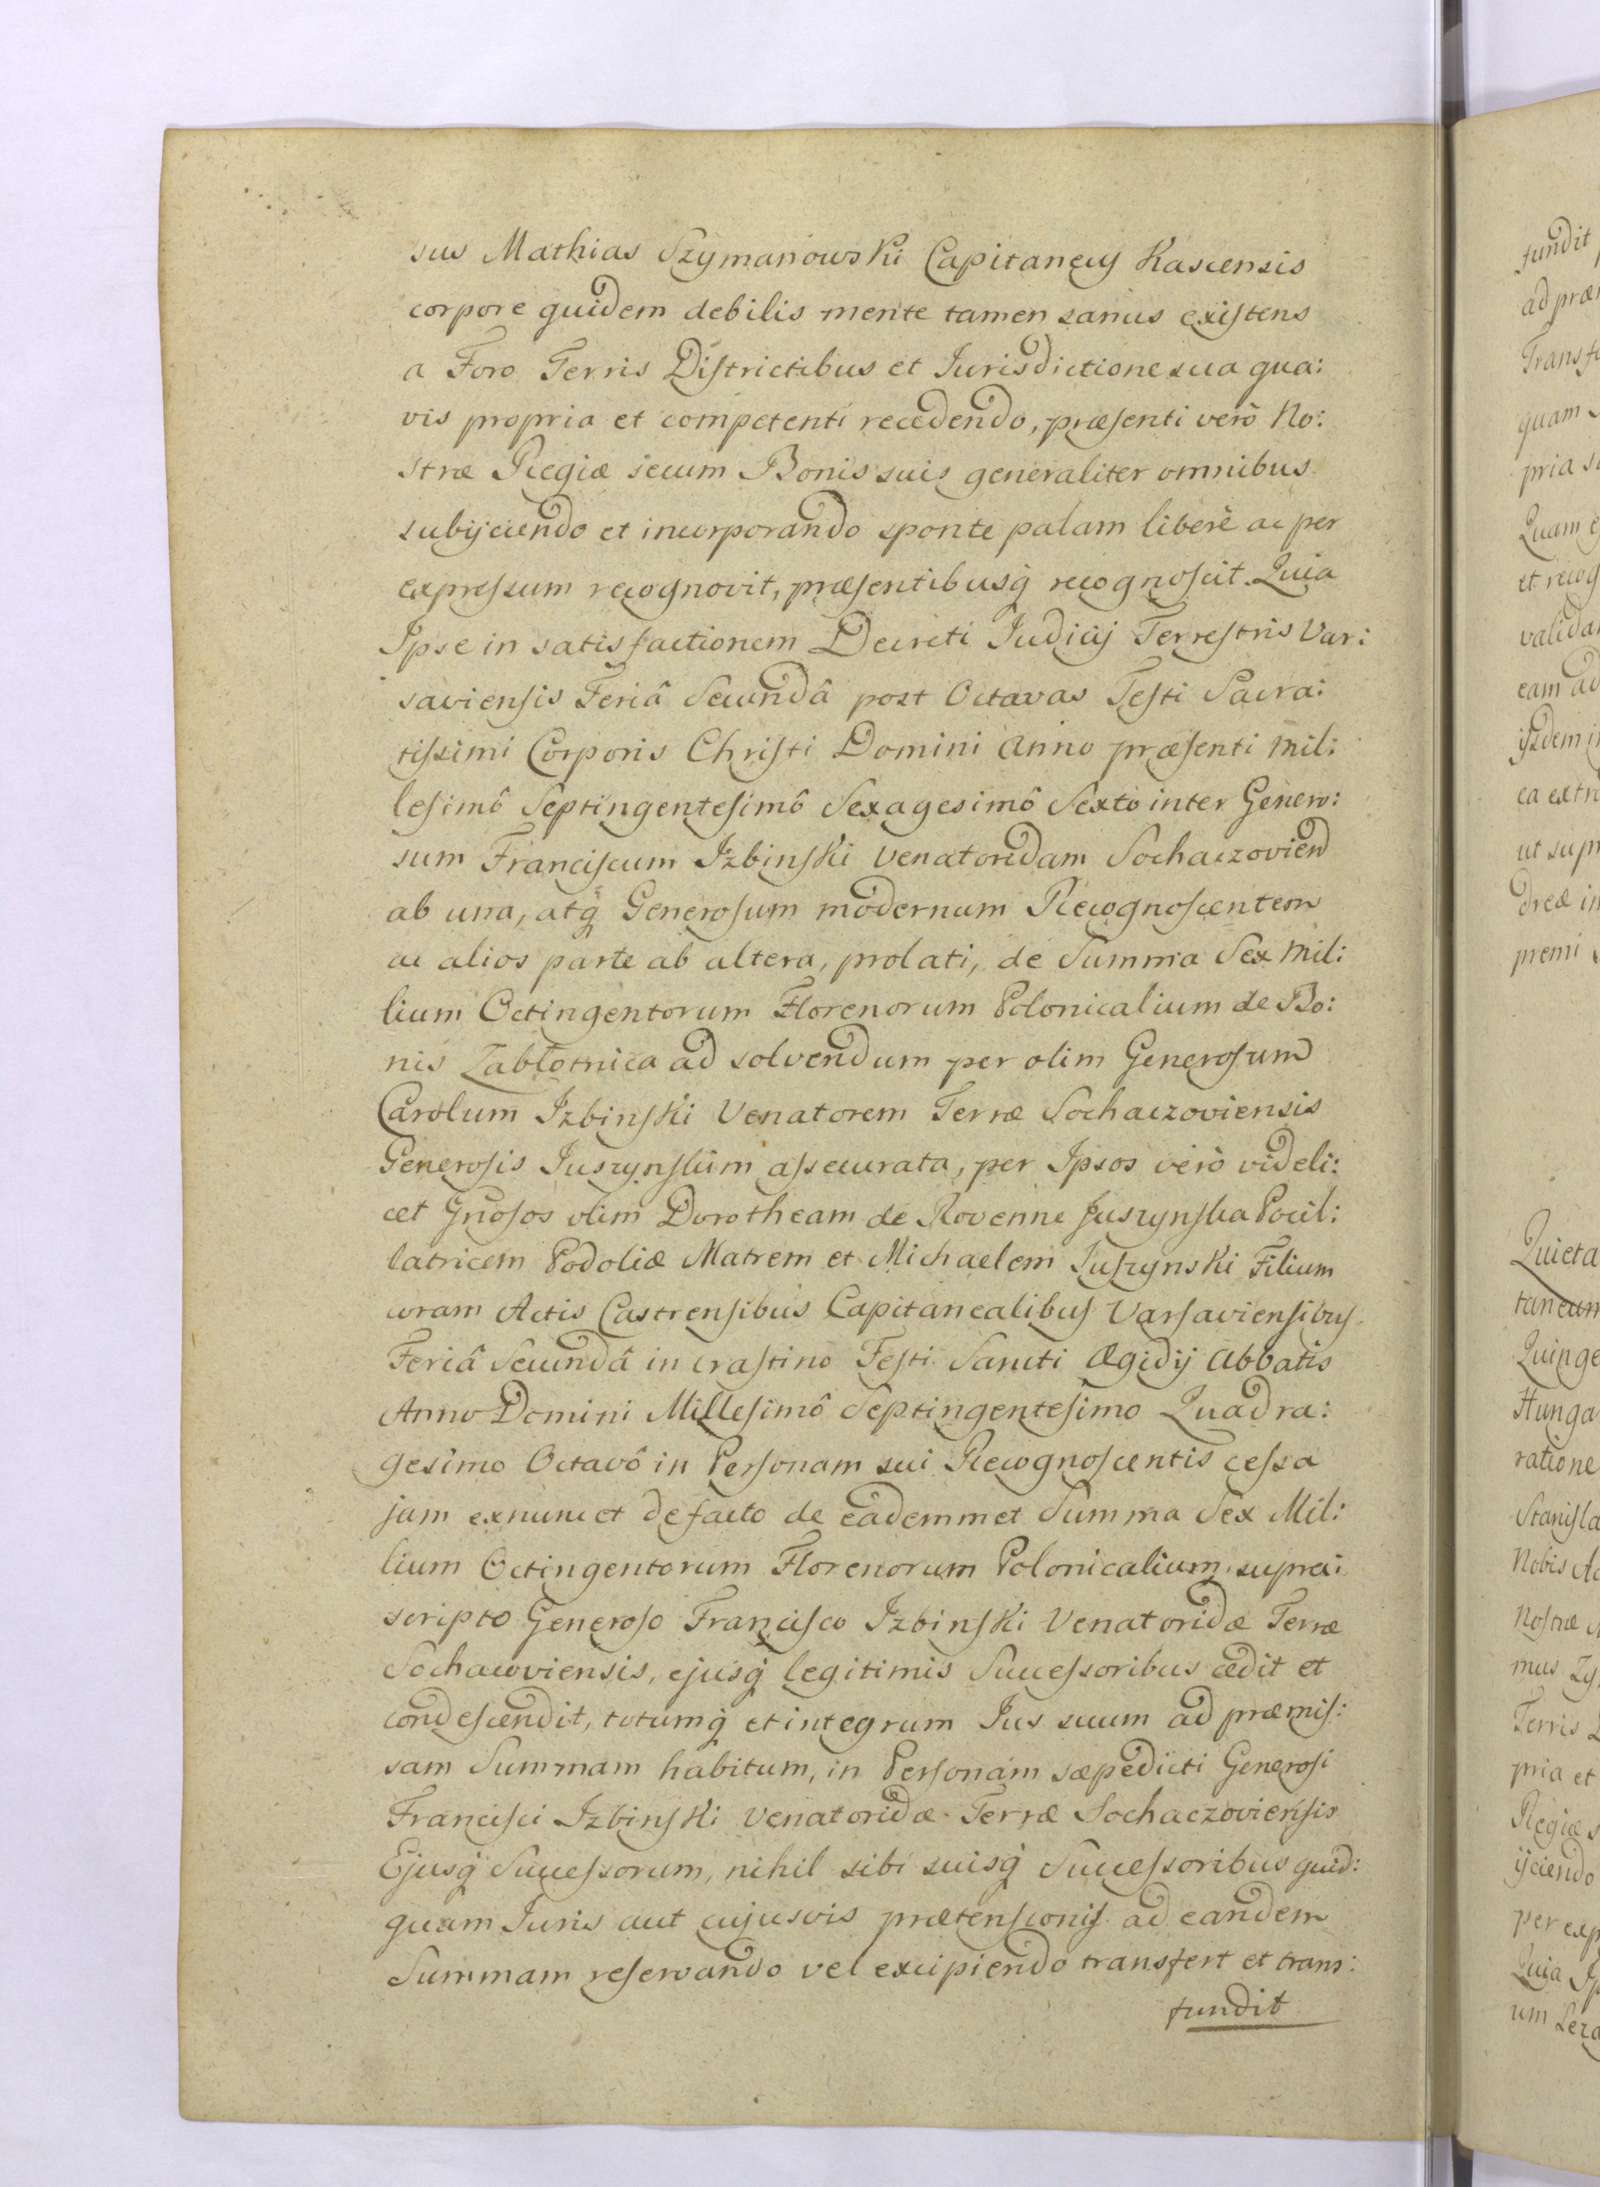 sus Mathias Szymanowski Capitaneus Kascensis
corpore quidem debilis mente tamen sanus existens
a Foro Terris Districtibus et Jurisdictione sua qua:
vis propria et competenti recedendo, præsenti verò No:
stræ Regiæ secum Bonis suis generaliter omnibus
subijciendo et incorporando sponte palam liberè ac per
expressum recognovit, præsentibusq́ recognoscit Quia
Ipse in satisfactionem Decreti Judicij Terrestris Var:
saviensis Feriâ Secundâ post Octavas Festi Sacra:
tissimi Corporis Christi Domini Anno præsenti Mil:
lesimô Septingentesimô Sexagesimô Sexto inter Genero:
sum Franciscum Izbinski Venatoridam Sochaczovien
ab una, atq́ Generosum modernum Recognoscentem
ac alios parte ab altera, prolati, de Summa Sex Mil:
lium Octingentorum Florenorum Polonicalium de Bo:
nis Zabłotnica ad solvendum per olim Generosum
Carolum Izbinski Venatorem Terræ Sochaczoviensis
Generosis Juszynskim assecurata, per Ipsos verò videli:
cet Gnosos olim Dorotheam de Rovenne Juszynska Pocil:
latricem Podoliæ Matrem et Michaelem Juszynski Filium
coram Actis Castrensibus Capitanealibus Varsaviensibus
Feriâ Secundâ in crastino Festi Sancti Ægidij Abbatis
Anno Domini Millesimô Septingentesimo Quadra:
gesimo Octavô in Personam sui Recognoscentis cessa
jam exnunc et de facto de eâdemmet Summa Sex Mil:
lium Octingentorum Florenorum Polonicalium, supra:
scripto Generoso Francisco Izbinski Venatoridæ Terræ
Sochacoviensis, ejusq́ legitimis Successoribus cedit et
condescendit, totumq́ et integrum Jus suum ad præmis:
sam Summam habitum, in Personam sæpedicti Generosi
Francisci Izbinski Venatoridæ Terræ Sochaczoviensis
Ejusq́ Successorum, nihil sibi suisq́ Successoribus quid:
quam Juris aut cujusvis prætensionis ad eandem
Summam reservando vel excipiendo transfert et trans:
fundit
fundit
ad præ
Transf
quam
pria
Quam
et recog
valida
eam ad
ijsdem i
ea extr
ut supr
dreæ in
premi
Quieta
taneum
Quinge
Hunga
ratione
Stanisla
Nobis Ac
Nostræ
mus Zy
Terris
pria et
Regiæ s
ijciendo
per exp
Quia Ip
um